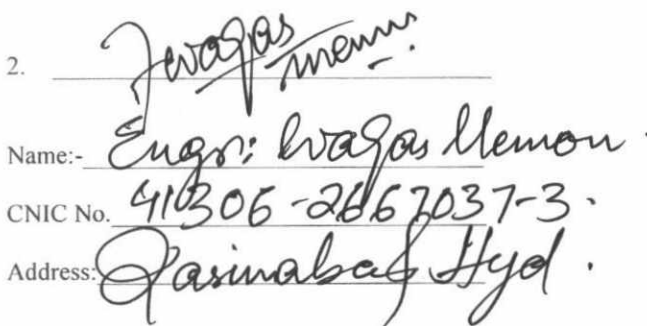 2. Jwaqas Memon.
Name:- Engr: Waqas Memon.
CNIC No. 41306-2667037-3.
Address: Qasimabad Hyd.